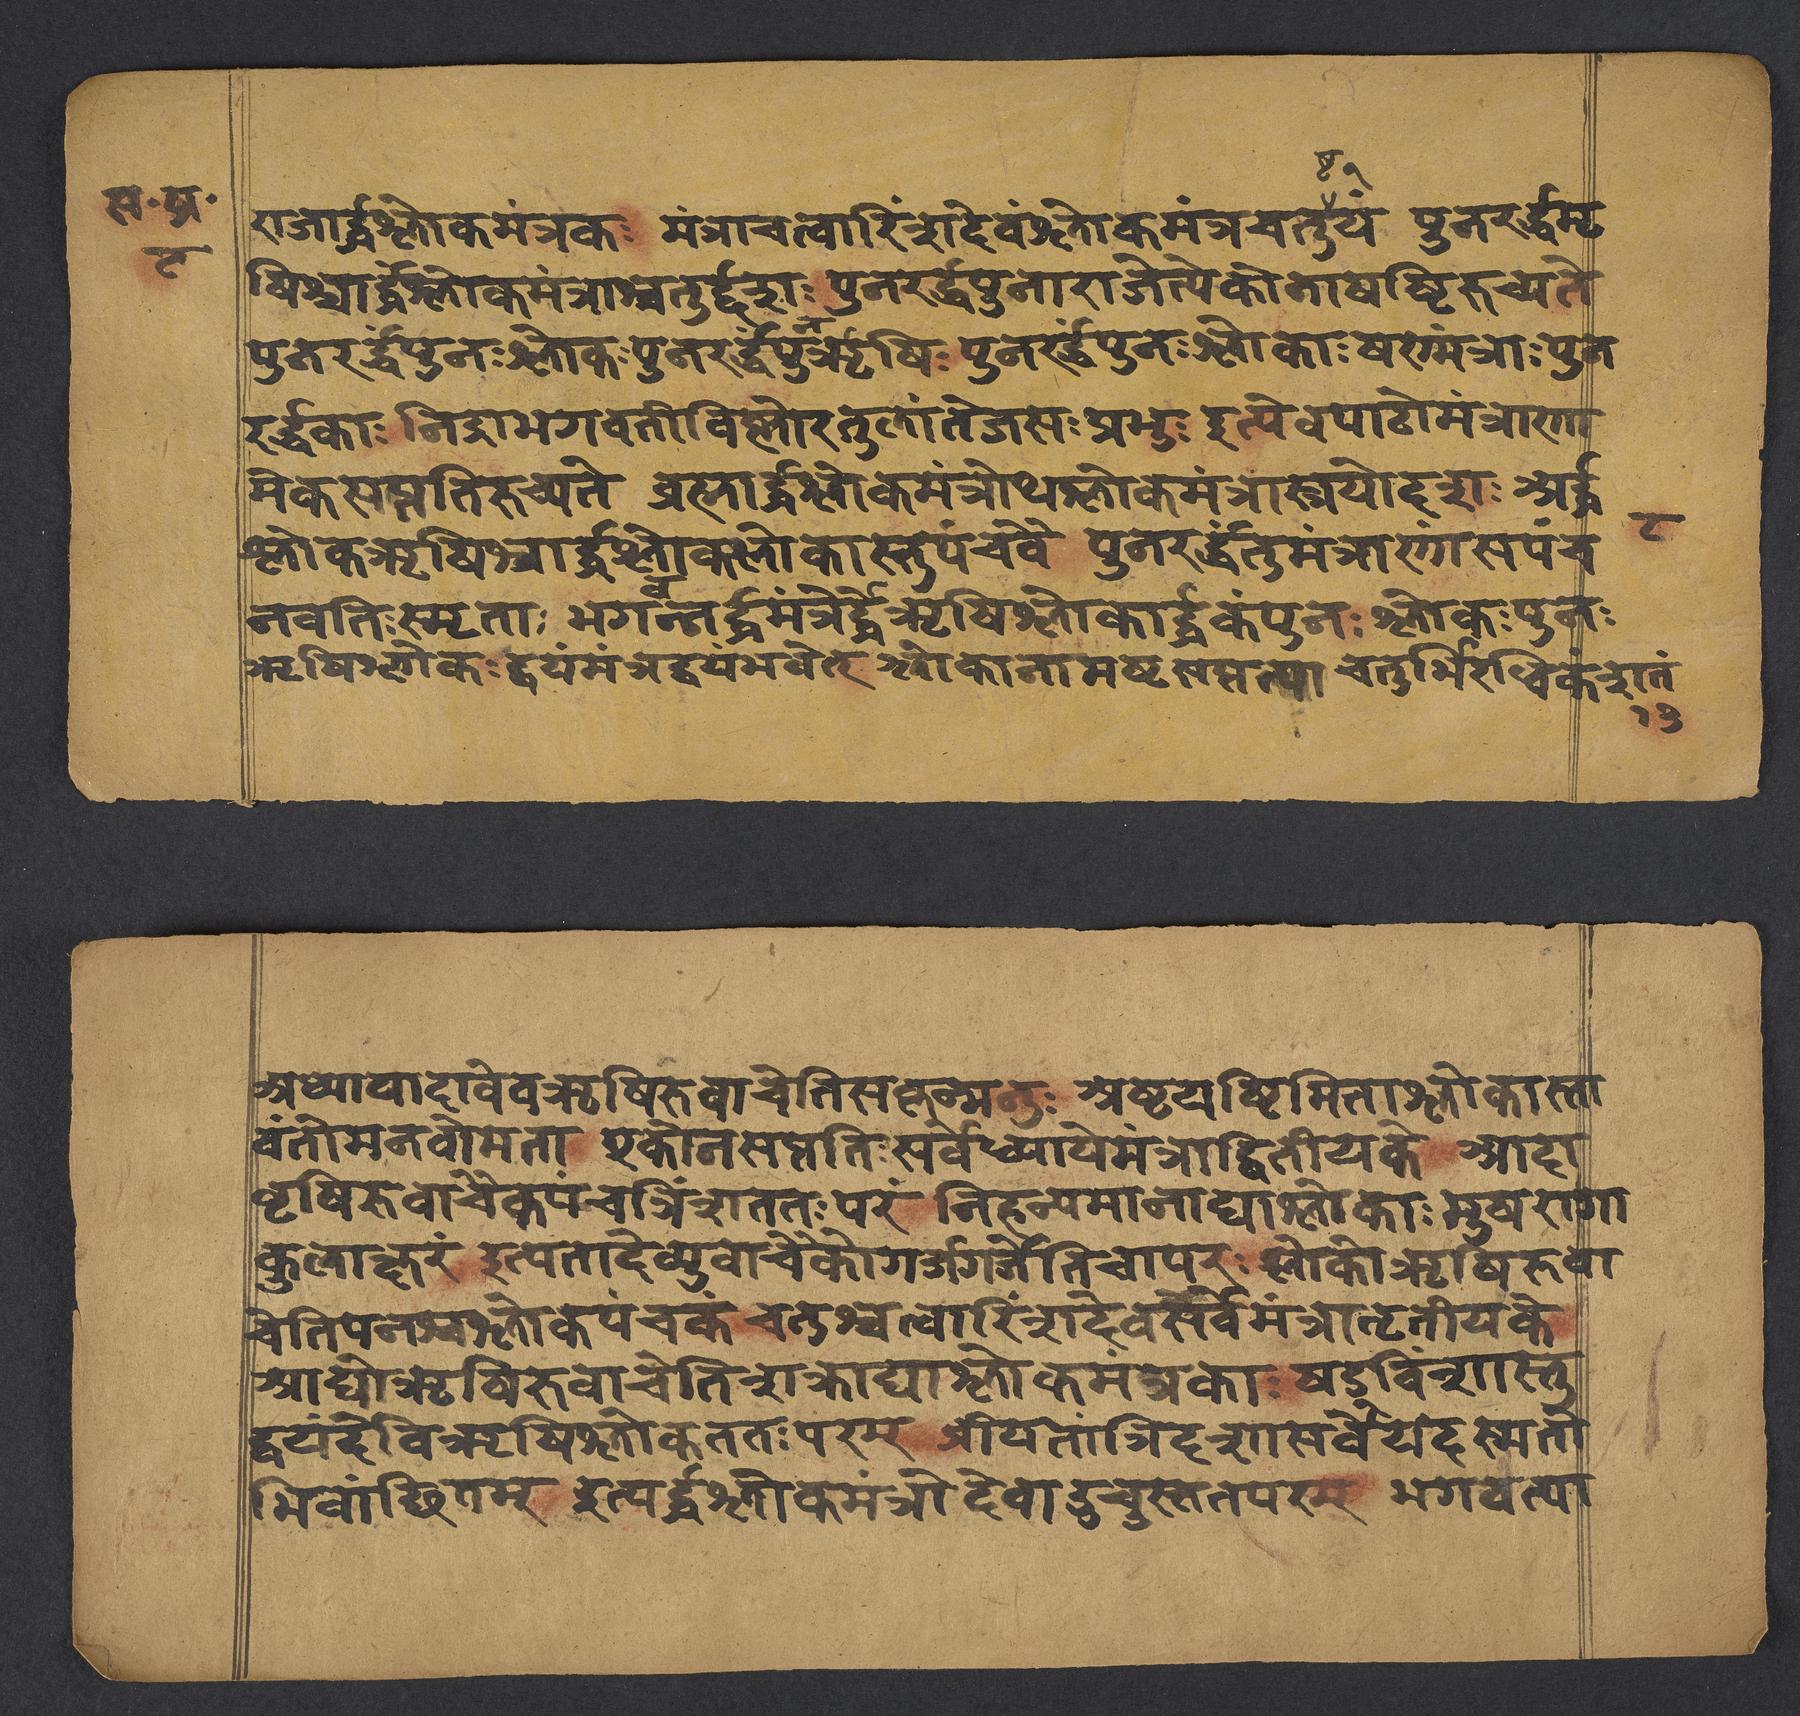 स॰ प्र॰
८
ष्ट १
राजार्द्धश्लोकमंत्रकः मंत्राचत्वारिंशदेवंश्लोकमंत्रचतुयं पुनरर्द्धमृ
षिश्चार्द्धश्लोकमंत्राश्चतुर्द्दशः पुनरर्द्धंपुनाराजेत्येकोनाषष्टिरुच्यते
पुनरर्द्धंपुनःश्लोकःपुनरर्द्धंपुनर्ऋषिः पुनरर्द्धंपुनःश्लोकाःषण्मंत्राःपुन
रर्द्धकाः निद्राभगवतीविष्णोरतुलांतेजसःप्रभुः इत्येवपाठोमंत्राणा
मेकसप्ततिरुच्यते ब्रह्मार्द्धश्लोकमंत्रोथश्लोकमंत्रास्त्रयोदशः अर्द्ध
श्लोकऋषिश्चार्द्धश्लोकश्लोकास्तुपंचवै पुनरर्द्धंतुमंत्राणांसपंच
८
नवतिःस्मृताः भगवन्तर्द्धमंत्रेर्द्धेऋषिश्लोकार्द्धकंपुनःश्लोकःपुनः
ऋषिश्लोकःद्वयंमंत्रद्वयंभवेत् श्लोकानामष्टसप्तत्या चतुर्भिरधिकंशतं
१३
अध्यायादावेवऋषिरुवाचेतिसकृन्मनुः अष्टषष्टिमिताश्लोकास्ता
वंतोमनवोमता एकोनसप्ततिःसर्वेध्यायेमंत्राद्वितीयके आदा
वृषिरुवाचैकपंचत्रिंशततःपरं निहन्यमानाद्याश्लोकाःमुषरागा
कुलाक्षरं इत्यतादेव्युवाचैकोगर्जगर्जेतिचापरः श्लोकोऋषिरुवा
चेतिपनश्चश्लोकपंचकं चतुश्चत्वारिंशदेवसर्वेमंत्रातृतीयके
आद्योऋषिरुवाचेतिशक्राद्याश्लोकमंत्रकाः षड्विंशास्तु
द्वयंदेविऋषिश्लोकततःपरम् व्रीयतांत्रिदशासर्वेयदस्मतो
भिवांछितम् इत्यर्द्धश्लोकमंत्रोदेवाऊचुस्ततपरम् भगवत्या